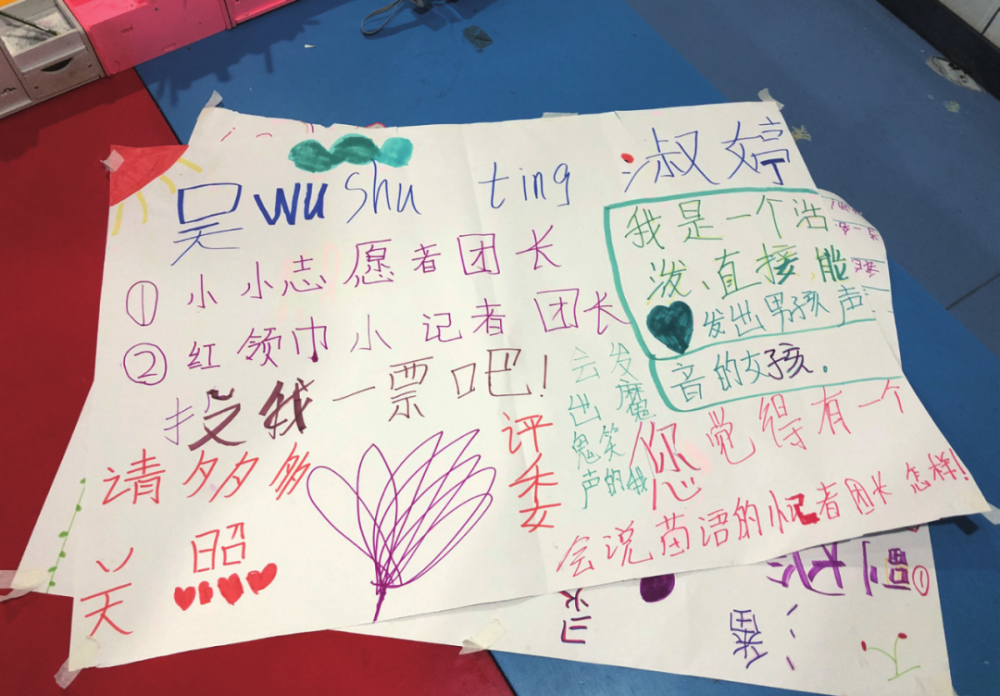 吴 wu shu ting 淑婷
① 小小志愿者团长
② 红领巾小记者团长
投我一票吧!
我是一个活
泼、直接,能
发出男孩声
音的女孩.
会发
出魔
鬼笑
声的我
评委
您觉得有一个
会说苗语的小记者团长怎样!
请多多多
关照